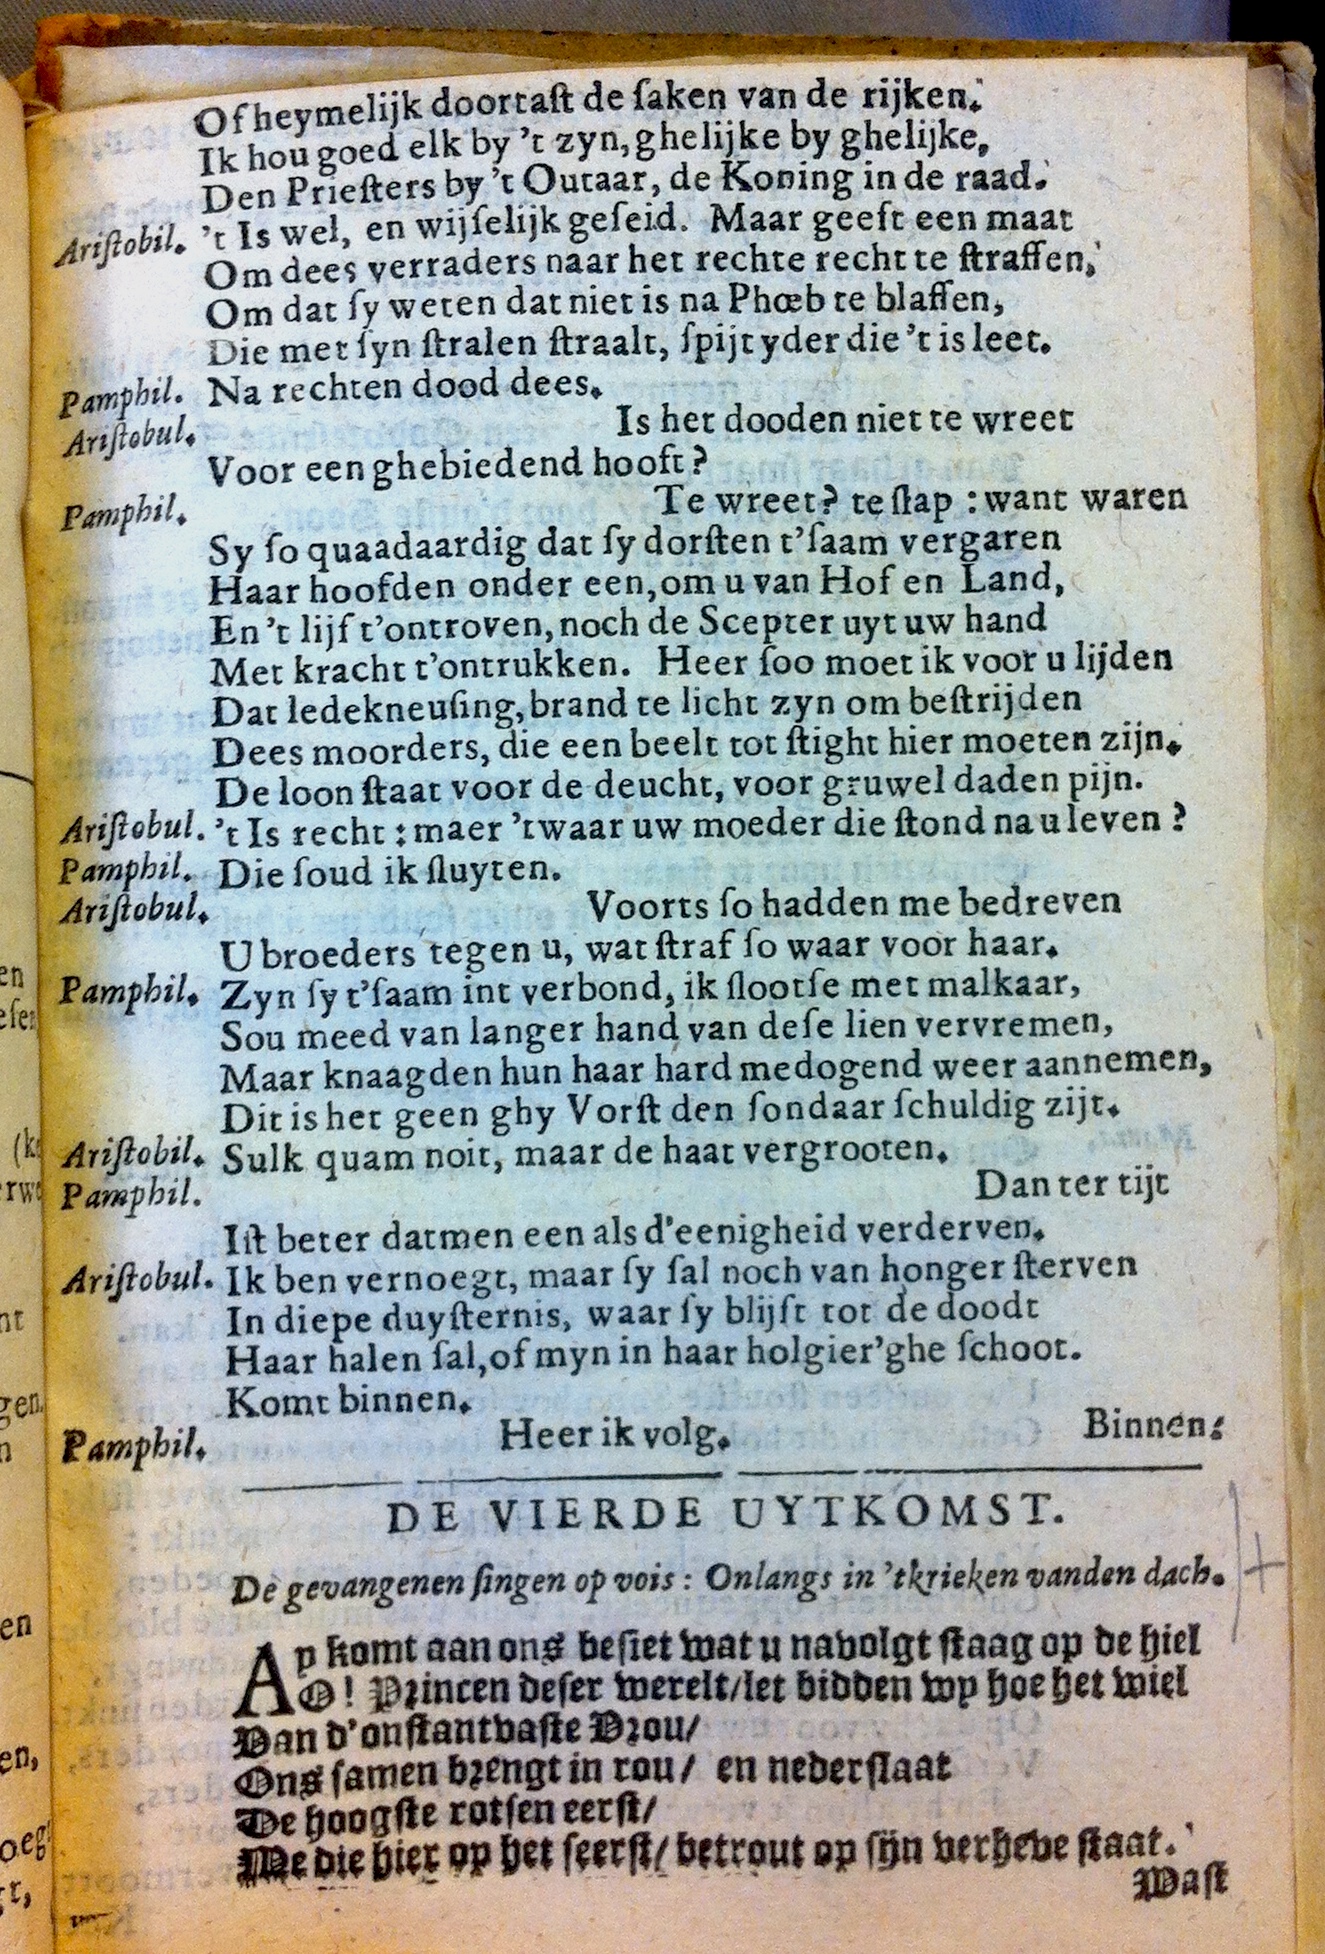 Of heymelijk doortaſt de ſaken van de rijken.
Ik hou goed elk by 't zyn, ghelijke by ghelijke,
Den Prieſters by 't Outaar, de Koning in de raad.
Ariſtobil. 't Is wel, en wijſelijk geſeid. Maar geeft een maat
Om dees verraders naar het rechte recht te ſtraffen,
Om dat ſy weten dat niet is na Phœb te blaffen,
Die met ſyn ſtralen ſtraalt, ſpijt yder die 't is leet.
Pamphil. Na rechten dood dees.
Ariſtobul. Is het dooden niet te wreet
Voor een ghebiedend hooft?
Pamphil. Te wreet? te ſlap : want waren
Sy ſo quaadaardig dat ſy dorſten t'ſaam vergaren
Haar hoofden onder een, om u van Hof en Land,
En 't lijf t'ontroven, noch de Scepter uyt uw hand
Met kracht t'ontrukken. Heer ſoo moet ik voor u lijden
Dat ledekneuſing, brand te licht zyn om beſtrijden
Dees moorders, die een beelt tot ſtight hier moeten zijn.
De loon ſtaat voor de deucht, voor gruwel daden pijn.
Ariſtobul. 't Is recht : maer 't waar uw moeder die ſtond na u leven?
Pamphil. Die ſoud ik ſluyten.
Ariſtobul. Voorts ſo hadden me bedreven
U broeders tegen u, wat ſtraf ſo waar voor haar.
Pamphil. Zyn ſy t'ſaam int verbond, ik ſlootſe met malkaar,
Sou meed van langer hand van deſe lien vervremen,
Maar knaagden hun haar hard medogend weer aannemen,
Dit is het geen ghy Vorſt den ſondaar ſchuldig zijt.
Ariſtobil. Sulk quam noit, maar de haat vergrooten.
Pamphil. Dan ter tijt
Iſt beter datmen een als d'eenigheid verderven.
Ariſtobul. Ik ben vernoegt, maar ſy ſal noch van honger ſterven
In diepe duyſternis, waar ſy blijft tot de doodt
Haar halen ſal, of myn in haar holgier'ghe ſchoot.
Komt binnen.
Pamphil. Heer ik volg. Binnen.
DE VIERDE UYTKOMST.
De gevangenen ſingen op vois : Onlangs in 't krieken vanden dach.
Ay komt aan ons beſiet wat u navolgt ſtaag op de hiel
O! Princen deſer werelt/ let bidden wy hoe het wiel
Van d'onſtantvaſte Vrou/
Ons ſamen brengt in rou/ en nederſlaat
De hoogſte rotſen eerſt/
Me die hier op het ſeerſt/ betrout op ſijn verheve ſtaat.
Waſt